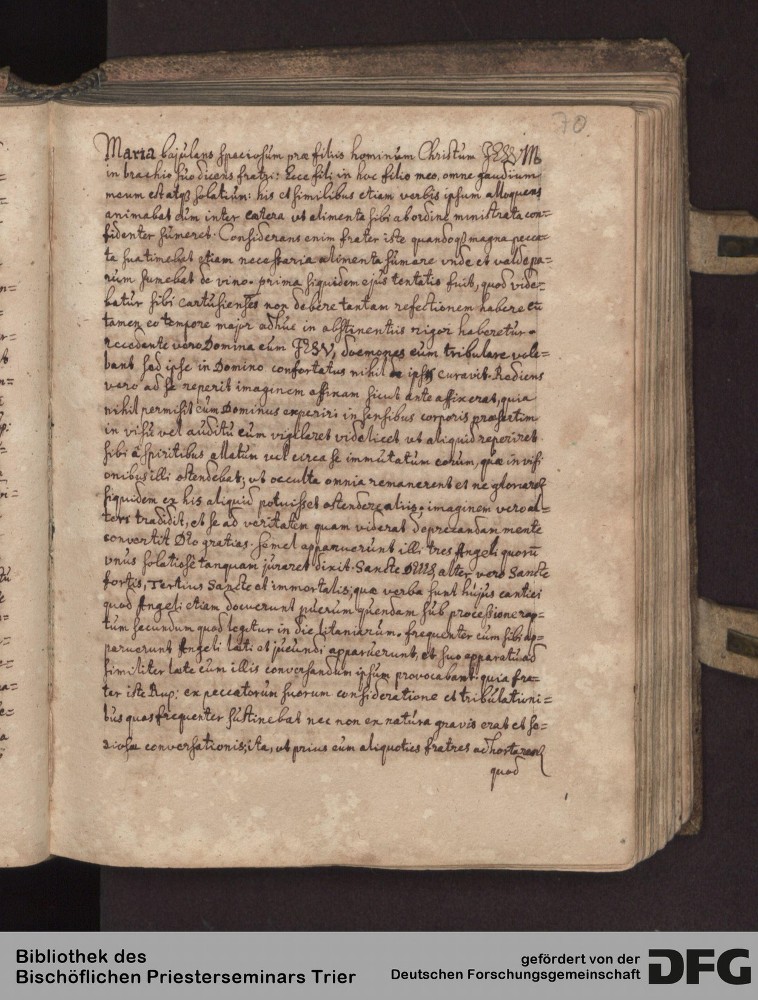 70.
Maria bajulans speciosum præ filiis hominum Christum JESUM
in brachio suo dicens fratri: Ecce fili in hoc filio meo, omne gaudium
meum est atq3 solatium: his et similibus etiam verbis ipsum alloquens
animabat eum inter cætera ut alimenta sibi ab ordine ministrata con=
fidenter sumeret. Considerans enim frater iste quandoq3 magna pecca=
ta sua timebat etiam necessaria alimenta sumere unde et valde pa=
rum sumebat de vino. prima siquidem ejus tentatio fuit, quod vide=
batur sibi cartusienses non debere tantam refectionem habere cū
tamen eo tempore major adhuc in abstinentiis rigor haberetur.
recedente vero Domina cum JESU, dæmones eum tribulare vole=
bant sed ipse in Domino confortatus nihil de ipsis curavit. Rediens
vero ad se reperit imaginem affixam sicut ante affixerat, quia
nihil permisit eum Dominus experiri in sensibus corporis præsertim
in visu vel auditu cum vigilaret videlicet ut aliquid reperiret
sibi a spiritibus allatum vel circa se immutatum eorum, quæ in visi
onibus illi ostendebat; ut occulta omnia remanerent et ne gloriaret
siquidem ex his aliquid potuisset ostendere aliis. imaginem vero al=
teri tradidit, et se ad veritatem quam viderat deprecandam mente
convertit Deo gratias. Semel apparuerunt illi tres Angeli quorū
unus solatiose tanquam juraret dixit. Sancte Deus, alter vero Sancte
fortis, Tertius Sancte et immortalis; quæ verba sunt hujus cantici
quod Angeli etiam docuerunt puerum quendam sub processione rap=
tum secundum quod legitur in die litaniarum. frequenter eum sibi ap=
paruerunt Angeli læti et jucundi apparuerunt, et suo apparatu ad
similiter læte cum illis conversandum ipsum provocabant: quia fra=
ter iste Rup: ex peccatorum suorum consideratione et tribulationi=
bus quas frequenter sustinebat nec non ex natura gravis erat et se=
riosæ conversationis; ita, ut prius eum aliquoties fratres adhortarent
quod
Bibliothek des
Bischöflichen Priesterseminars Trier
gefördert von der
Deutschen Forschungsgemeinschaft
DFG